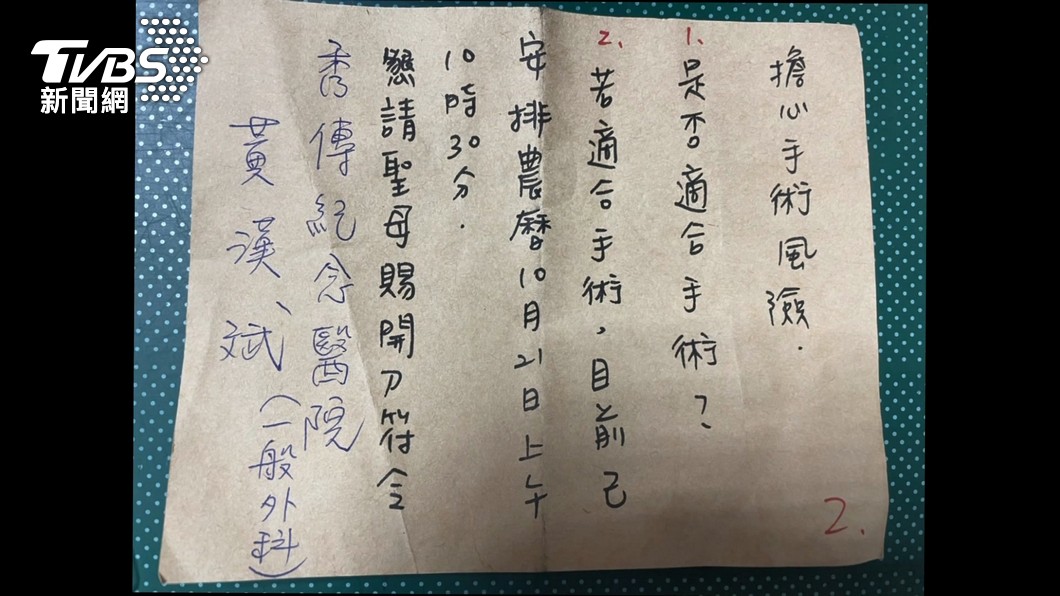 TVBS
新聞網
擔心手術風險.
1.是否適合手術？
2.若適合手術，目前已
安排農曆10月21日上午
10時30分.
懇請聖母賜開刀符令
秀傳紀念醫院
黃漢斌(一般外科)
2.